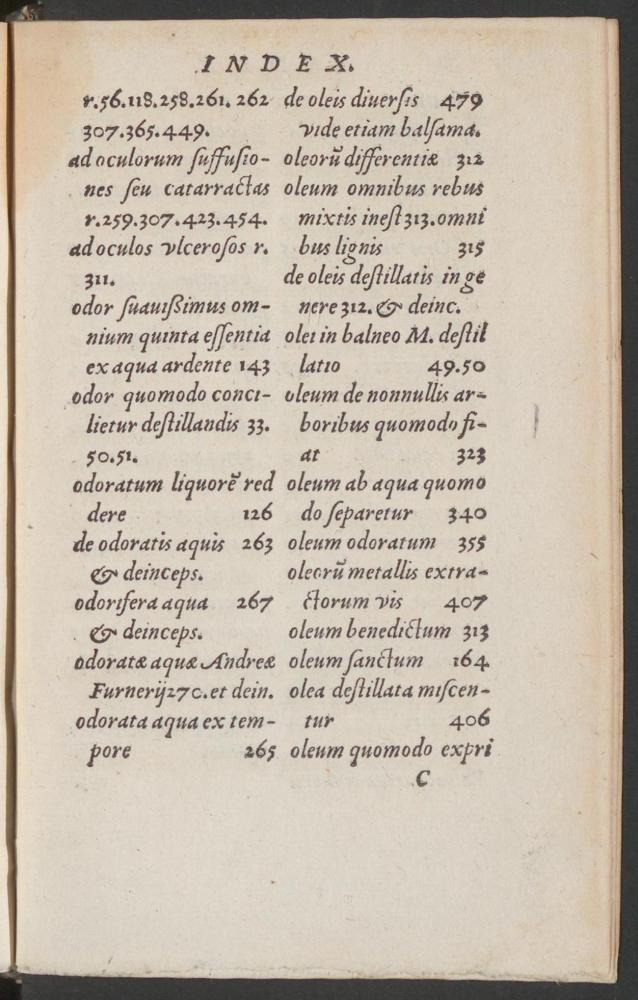 INDEX.
r.56.118.258.261. 262
307.365.449.
ad oculorum ſuffuſio-
nes ſeu catarractas
r.259.307.423.454.
ad oculos vlceroſos r.
311.
odor ſuauiſsimus om-
nium quinta eſſentia
ex aqua ardente 143
odor quomodo conci-
lietur deſtillandis 33.
50.51.
odoratum liquorẽ red
dere 126
de odoratis aquis 263
& deinceps.
odorifera aqua 267
& deinceps.
odoratæ aquæ Andreæ
Furnerij 270.et dein.
odorata aqua ex tem-
pore 265
de oleis diuerſis 479
vide etiam balſama.
oleorũ differentiæ 312
oleum omnibus rebus
mixtis ineſt 313.omni
bus lignis 315
de oleis deſtillatis in ge
nere 312. & deinc.
olei in balneo M. deſtil
latio 49.50
oleum de nonnullis ar-
boribus quomodo fi-
at 323
oleum ab aqua quomo
do ſeparetur 340
oleum odoratum 355
oleorũ metallis extra-
ctorum vis 407
oleum benedictum 313
oleum ſanctum 164
olea deſtillata miſcen-
tur 406
oleum quomodo expri
C